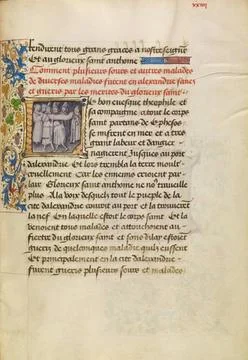 xxiiij
rendirent tous grans graces a nostre seigneur
Et au glorieux saint anthome
Comment pluseurs sours et autres malades
de diuerses maladies furent en alexandrie sanez
et gueris par les merites du glorieux saint
le bon euesque theophile et
sa compaignie atout le corps
saint partans de
se misrent en mer et a tres
grant labeur et dangier
nagierent Jusques au port
dalexandrie Et lors trembla la terre moult
cruellement Car les ennemis crioient par
lair Glorieux saint anthome ne no' traueille
plus A la voix desquelz tout le pueple de la
cite dalexandrie courut au port et la trouuerent
la nef En laquelle estoit le corps saint Et la
venoient tous malades et attouchoient au
du glorieux saint et sons dilay estoiet
gueris de quelconques maladie quilz eussent
Et principalement en la cite dalexandrie
furent gueris pluseurs sours et malades